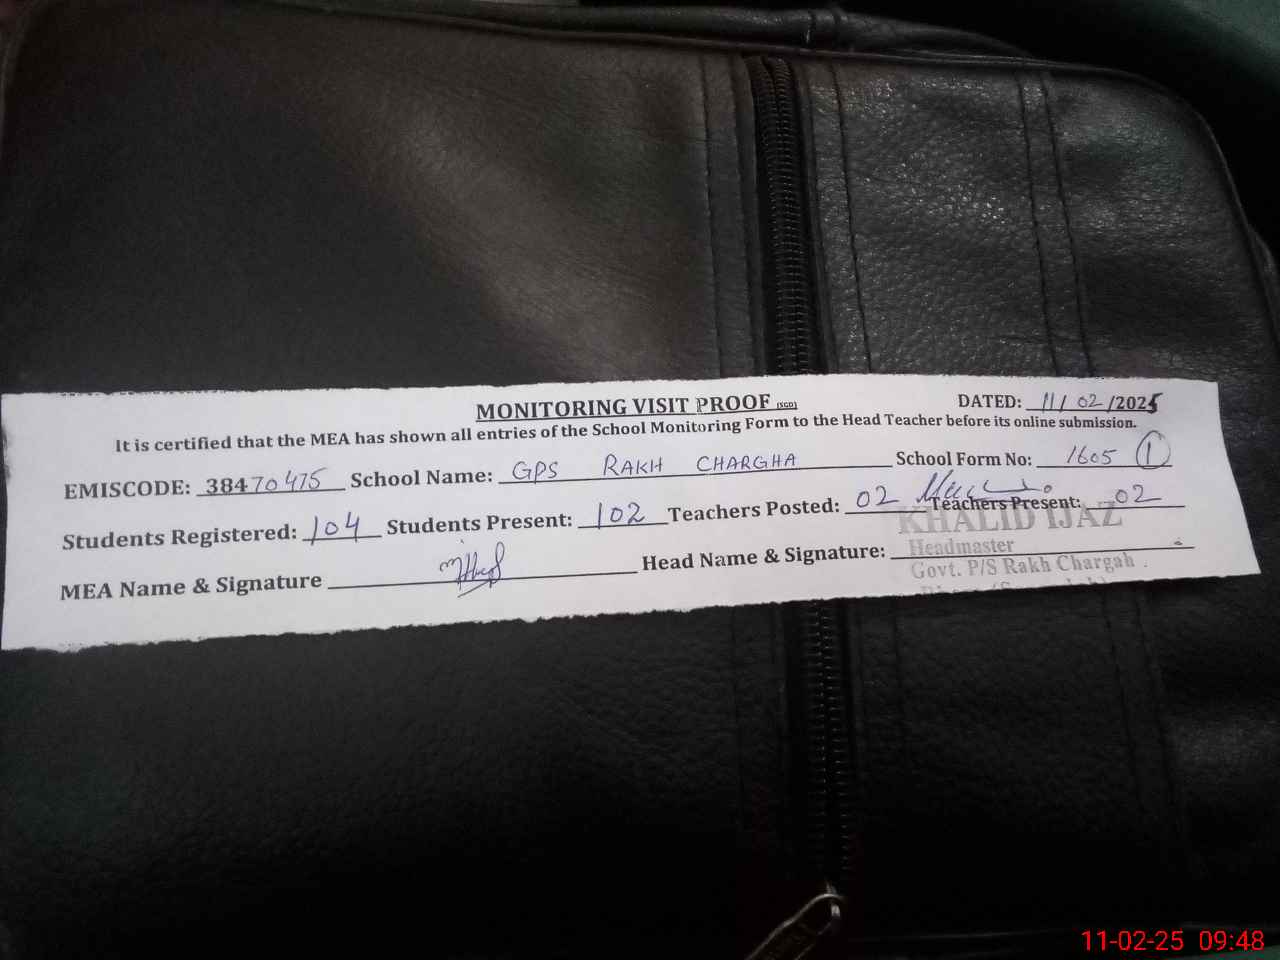 MONITORING VISIT PROOF (SGD) DATED: 11/02/2025
It is certified that the MEA has shown all entries of the School Monitoring Form to the Head Teacher before its online submission.
EMISCODE: 38470475 School Name: GPS RAKH CHARGHA School Form No: 1605 1
Students Registered: 104 Students Present: 102 Teachers Posted: 02 Teachers Present: 02
KHALID IJAZ
MEA Name & Signature Head Name & Signature:
Headmaster
Govt. P/S Rakh Chargah
11-02-25 09:48